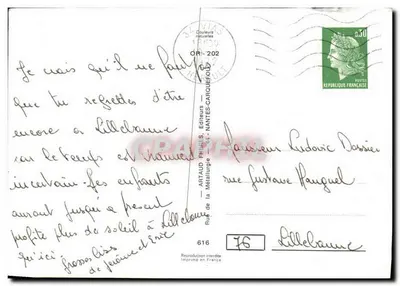 Je crois qu'il ne faut pas
que tu regrettes d'être
encore à Lillebonne
car le temps est vraiment
incertain. Les enfants
auront jusqu'à présent
profité plus de soleil à Lillebonne
qu'ici grosses bises
de Jérôme et Eric
Couleurs
naturelles
OR-202
ARTAUD FRÈRES, Editeurs
Rue de la Métallurgie - NANTES-CARQUEFOU
616
Reproduction interdite
Imprimé en France
0,50
POSTES
REPUBLIQUE FRANÇAISE
Monsieur Ludovic
rue Gustave
76 Lillebonne